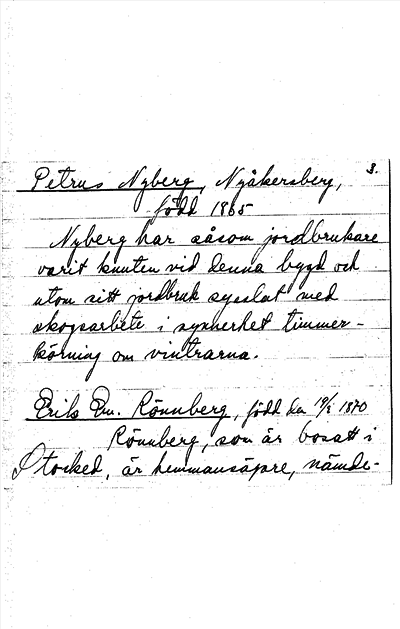 3.
Petrus Nyberg, Nyåkersberg,
född 1865
Nyberg har såsom jordbrukare
varit knuten vid denna bygd och
utom sitt jordbruk sysslat med
skogsarbete i synnerhet timmer-
körning om vintrarna.
Erik Em. Rönnberg, född den 19/2 1870
Rönnberg, som är bosatt i
Stocked, är hemmansägare, nämde-